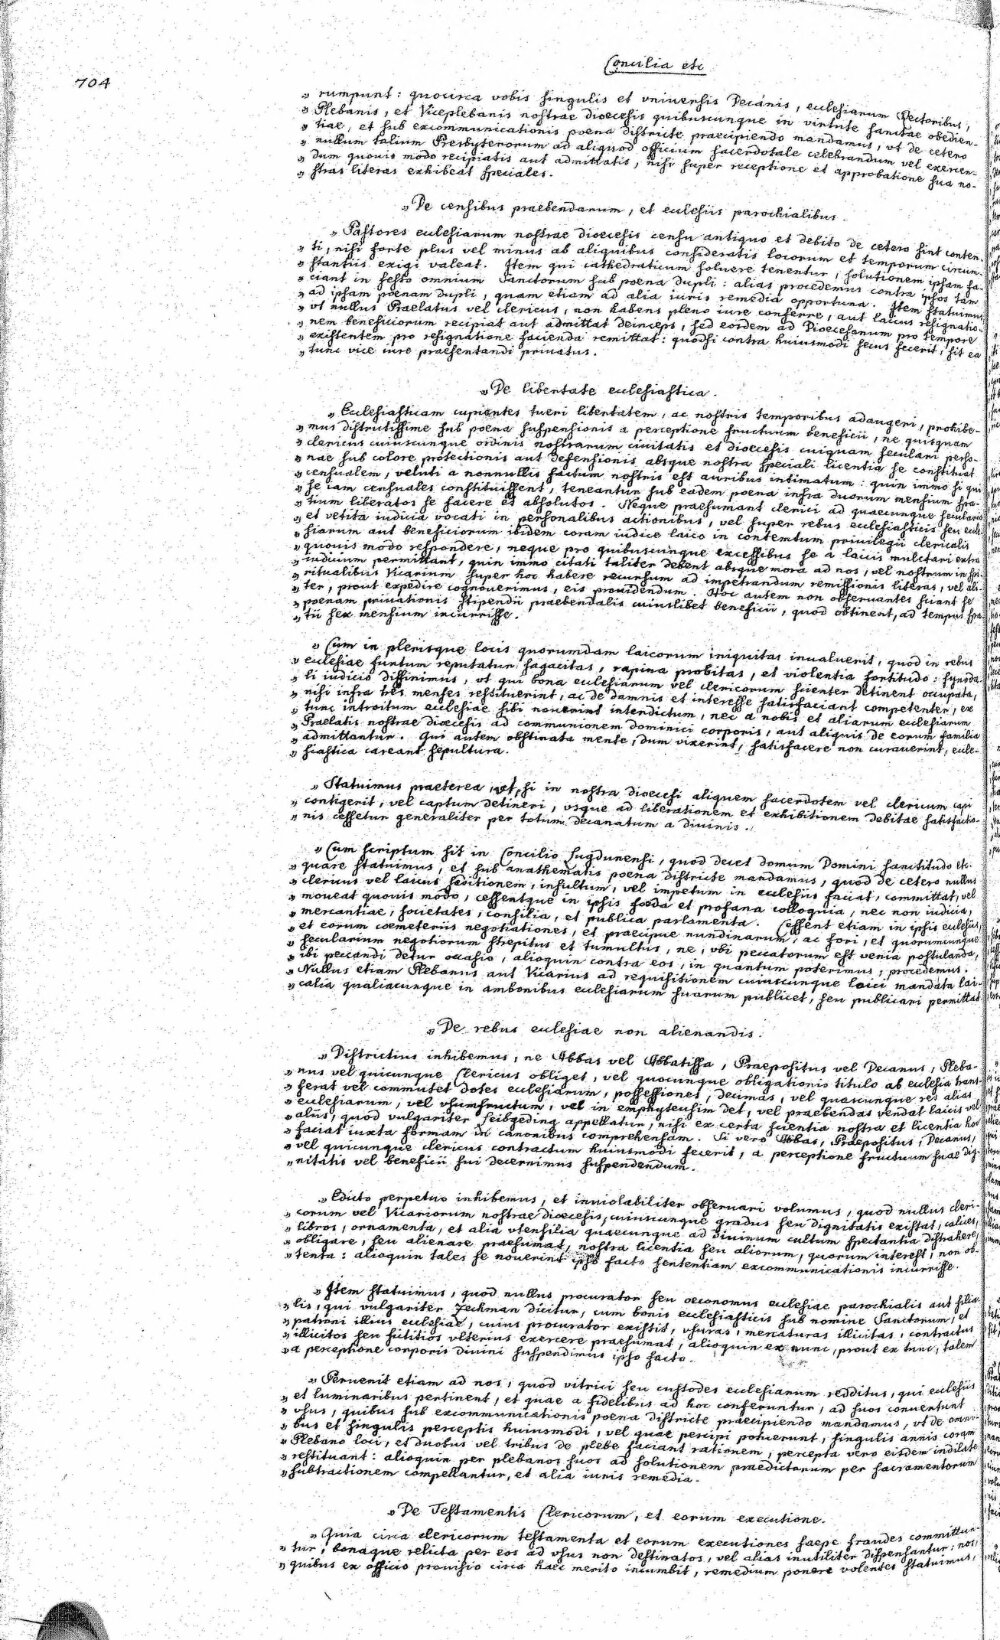 704
Concilia etc
„ rumpunt: quocirca vobis singulis et vniuersis Decanis, ecclesiarum Rectoribus,
„ Plebanis, et Viceplebanis nostrae dioecesis quibuscunque in virtute sanctae obedien-
„ tiae, et sub excommunicationis poena districte praecipiendo mandamus, vt de cetero
„ nullum talium Presbyterorum ad aliquod officium sacerdotale celebrandum vel exercen-
„ dum quouis modo recipiatis aut admittatis, nisi super receptione et approbatione sua no-
„ stras literas exhibeat speciales.
„ De censibus praebendarum, et ecclesiis parochialibus.
„ Pastores ecclesiarum nostrae dioecesis censu antiquo et debito de cetero sint conten-
„ ti, nisi forte plus vel minus ab aliquibus consideratis locorum et temporum circum-
„ stantiis exigi valeat. Item qui cathedraticum soluere tenentur, solutionem ipsam fa-
„ ciant in festo omnium Sanctorum sub poena dupli: alias procedemus contra ipsos tam
„ ad ipsam poenam dupli, quam etiam ad alia iuris remedia opportuna. Item statuimus,
„ vt nullus Praelatus vel clericus, non habens pleno iure conferre, aut laicus resignatio-
„ nem beneficiorum recipiat aut admittat deinceps, sed eosdem ad Dioecesanum pro tempore
„ existentem pro resignatione facienda remittat: quodsi contra huiusmodi secus fecerit, sit ea
„ tunc vice iure praesentandi priuatus.
„ De libertate ecclesiastica.
„ Ecclesiasticam cupientes tueri libertatem, ac nostris temporibus adaugeri, prohibe-
„ mus districtissime sub poena suspensionis a perceptione fructuum beneficii, ne quisquam
„ clericus cuiuscunque ordinis nostrarum ciuitatis et dioecesis cuiquam seculari perso-
„ nae sub colore protectionis aut defensionis absque nostra speciali licentia se constituat
„ censualem, veluti a nonnullis factum nostris est auribus intimatum: quin immo si qui
„ se iam censuales constituissent, teneantur sub eadem poena infra duorum mensium spa-
„ tium liberatos se facere et absolutos. Neque praesumant clerici ad quaecunque secularia
„ et vetita iudicia vocati in personalibus actionibus, vel super rebus ecclesiasticis seu eccle-
„ siarum aut beneficiorum ibidem coram iudice laico in contemtum priuilegii clericalis
„ quouis modo respondere, neque pro quibuscunque excessibus se a laicis mulctari extra
„ iudicium permittant, quin immo citati taliter debent absque mora ad nos, vel nostrum in spi-
„ ritualibus Vicarium super hoc habere recursum ad impetrandum remissionis literas, vel ali-
„ ter, prout expedire cognouerimus, eis prouidendum. Hoc autem non obseruantes sciant se
„ poenam priuationis stipendii praebendalis cuiuslibet beneficii, quod obtinent, ad tempus spa-
„ tii sex mensium incurrisse.
„ Cum in plerisque locis quorumdam laicorum iniquitas inualuerit, quod in rebus
„ ecclesiae furtum reputatur sagacitas, rapina probitas, et violentia fortitudo: synoda-
„ li iudicio diffinimus, vt qui bona ecclesiarum vel clericorum scienter detinent occupata,
„ nisi infra tres menses restituerint, ac de damnis et interesse satisfaciant competenter, ex
„ tunc introitum ecclesiae sibi nouerint interdictum, nec a nobis et aliarum ecclesiarum
„ Praelatis nostrae dioecesis ad communionem dominici corporis, aut aliquis de eorum familia
„ admittantur. Qui autem obstinata mente, dum vixerint, satisfacere non curauerint, eccle-
„ siastica careant sepultura.
„ Statuimus praeterea, vt, si in nostra dioecesi aliquem sacerdotem vel clericum capi
„ contigerit, vel captum detineri, vsque ad liberationem et exhibitionem debitae satisfactio-
„ nis cessetur generaliter per totum decanatum a diuinis.
„ Cum scriptum sit in Concilio Lugdunensi, quod decet domum Domini sanctitudo etc.
„ quare statuimus, et sub anathematis poena districte mandamus, quod de cetero nullus
„ clericus vel laicus seditionem, insultum, vel impetum in ecclesiis faciat, committat, vel
„ moueat quouis modo, cessentque in ipsis foeda et profana colloquia, nec non iudicia,
„ mercantiae, societates, consilia, et publica parlamenta. Cessent etiam in ipsis ecclesiis,
„ et eorum coemeteriis negotiationes, et praecipue nundinarum, ac fori, et quorumcunque
„ secularium negotiorum strepitus et tumultus, ne, vbi peccatorum est venia postulanda,
„ ibi peccandi detur occasio, alioquin contra eos, in quantum poterimus, procedemus.
„ Nullus etiam Plebanus aut Vicarius ad requisitionem cuiuscunque laici mandata lai-
„ calia qualiacunque in ambonibus ecclesiarum suarum publicet, seu publicari permittat
„ De rebus ecclesiae non alienandis.
„ Districtius inhibemus, ne Abbas vel Abbatissa, Praepositus vel Decanus, Pleba-
„ nus vel quicunque Clericus obliget, vel quocunque obligationis titulo ab ecclesia trans-
„ ferat vel commutet dotes ecclesiarum, possessiones, decimas, vel quascunque res alias
„ ecclesiarum, vel vsumfructum, vel in emphyteusim det, vel praebendas vendat laicis vel
„ aliis, quod vulgariter Leibgeding appellatur, nisi ex certa scientia nostra et licentia hoc
„ faciat iuxta formam in canonibus comprehensam. Si vero Abbas, Praepositus, Decanus,
„ vel quicunque clericus contractum huiusmodi fecerit, a perceptione fructuum suae dig-
„ nitatis vel beneficii sui decernimus suspendendum.
„ Edicto perpetuo inhibemus, et inuiolabiliter obseruari volumus, quod nullus cleri-
„ corum vel Vicariorum nostrae dioecesis, cuiuscunque gradus seu dignitatis existat, calices,
„ libros, ornamenta, et alia vtensilia quaecunque ad diuinum cultum spectantia distrahere,
„ obligare, seu alienare praesumat, nostra licentia seu aliorum, quorum interest, non ob-
„ tenta: alioquin tales se nouerint ipso facto sententiam excommunicationis incurrisse.
„ Item statuimus, quod nullus procurator seu oeconomus ecclesiae parochialis aut filia-
„ lis, qui vulgariter Zeckman dicitur, cum bonis ecclesiasticis sub nomine Sanctorum, et
„ patroni illius ecclesiae, cuius procurator existit, vsuras, mercaturas illicitas, contractus
„ illicitos seu fictitios vlterius exercere praesumat, alioquin ex nunc, prout ex tunc, talem
„ a perceptione corporis diuini suspendimus ipso facto.
„ Peruenit etiam ad nos, quod vitrici seu custodes ecclesiarum redditus, qui ecclesiis
„ et luminaribus pertinent, et quae a fidelibus ad hoc conferuntur, ad suos conuertunt
„ vsus, quibus sub excommunicationis poena districte praecipiendo mandamus, vt de omni-
„ bus et singulis perceptis huiusmodi, vel quae percipi potuerunt, singulis annis coram
„ Plebano loci, et duobus vel tribus de plebe faciant rationem, percepta vero eisdem indilate
„ restituant: alioquin per plebanos suos ad solutionem praedictorum per sacramentorum
„ subtractionem compellantur, et alia iuris remedia.
„ De Testamentis Clericorum, et eorum executione.
„ Quia circa clericorum testamenta et eorum executiones saepe fraudes committun-
„ tur, bonaque relicta per eos ad vsus non destinatos, vel alias inutiliter dispensantur: nos,
„ quibus ex officio prouisio circa haec merito incumbit, remedium ponere volentes statuimus,